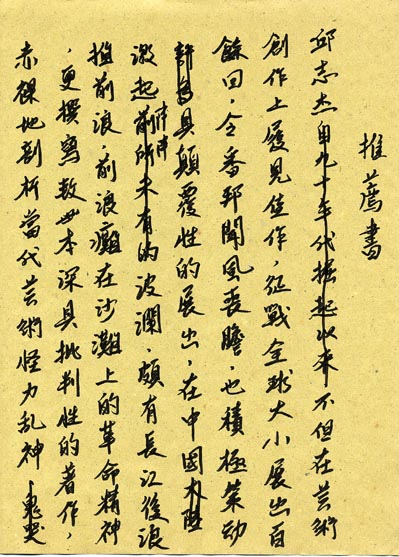 推薦書
邱志杰自九十年代掘起以來不但在芸術
創作上屢見佳作，征戰全球大小展出百
餘回，令番邦聞風喪膽，也積極策动
許多具顛覆性的展出，在中國大陸
激起陣陣前所未有的波瀾，頗有長江後浪
推前浪，前浪癱在沙灘上的革命精神
，更撰寫数本深具批判性的著作，
赤裸地剖析當代芸術怪力乱神、鬼哭